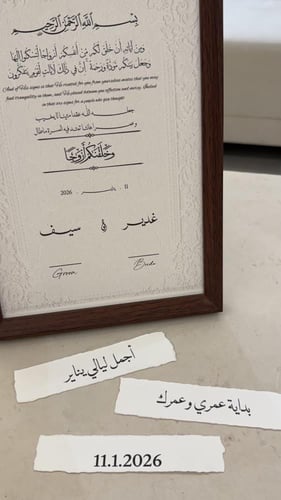 بسم الله الرحمن الرحيم
ومن آياته أن خلق لكم من أنفسكم أزواجا لتسكنوا إليها
وجعل بينكم مودة ورحمة إن في ذلك لآيات لقوم يتفكرون
And of His signs is that He created for you from yourselves mates that you may
find tranquility in them, and He placed between you affection and mercy. Indeed
in that are signs for a people who give thought
وخلقناكم أزواجا
11 . . 2026
غدير & سيف
Groom Bride
أجمل ليالي يناير
بداية عمري وعمرك
11.1.2026